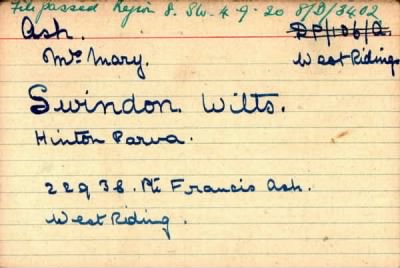 File passed Region 8. Sw. 4-9-20 8/D/3402
Ash. DP/106/A
Mrs Mary. West Riding
Swindon Wilts.
Hinton Parva.
22938. Pte Francis Ash.
West Riding.